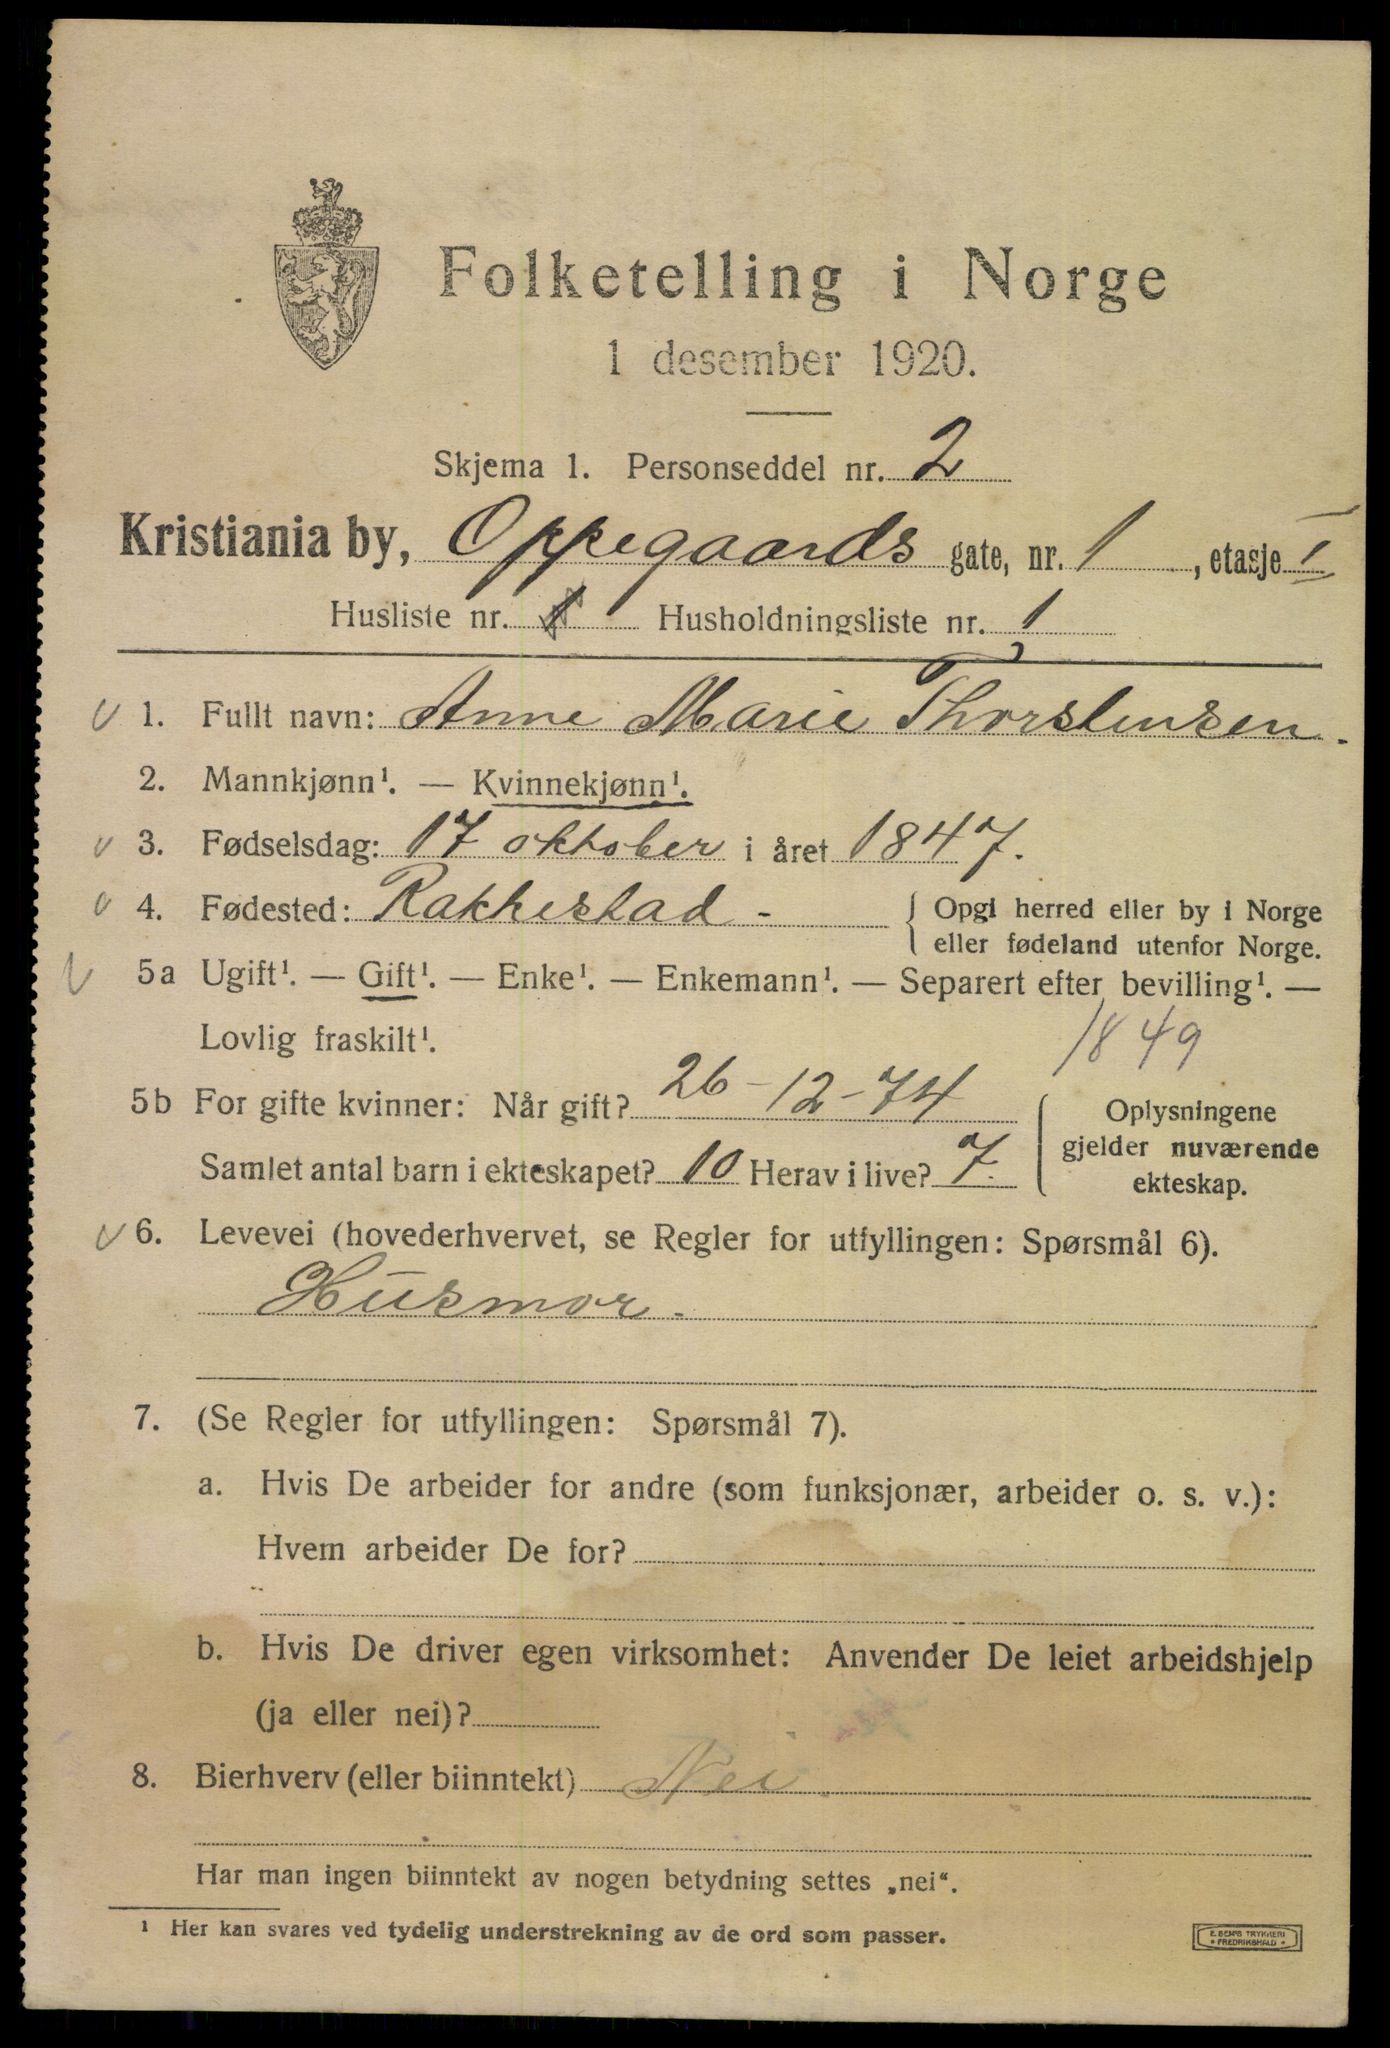 Folketelling i Norge
1 desember 1920.
Skjema 1. Personseddel nr. 2
Kristiania by, Oppegaards gate, nr. 1, etasje I
Husliste nr. 1 Husholdningsliste nr. 1
1. Fullt navn: Anne Marie Thorstensen.
2. Mannkjønn¹. — Kvinnekjønn¹.
3. Fødselsdag: 17 oktober i året 1847.
4. Fødested: Rakkestad - Opgi herred eller by i Norge
eller fødeland utenfor Norge.
5a Ugift¹. — Gift¹. — Enke¹. — Enkemann¹. — Separert efter bevilling¹. —
Lovlig fraskilt¹. 1849
5b For gifte kvinner: Når gift? 26-12-74
Samlet antal barn i ekteskapet? 10 Herav i live? 7.
Oplysningene
gjelder nuværende
ekteskap.
6. Levevei (hovederhvervet, se Regler for utfyllingen: Spørsmål 6).
Husmor.
7. (Se Regler for utfyllingen: Spørsmål 7).
a. Hvis De arbeider for andre (som funksjonær, arbeider o. s. v.):
Hvem arbeider De for?
b. Hvis De driver egen virksomhet: Anvender De leiet arbeidshjelp
(ja eller nei)?
8. Bierhverv (eller biinntekt) Nei.
Har man ingen biinntekt av nogen betydning settes „nei“.
¹ Her kan svares ved tydelig understrekning av de ord som passer.
E. SEM'S TRYKKERI
FREDRIKSHALD